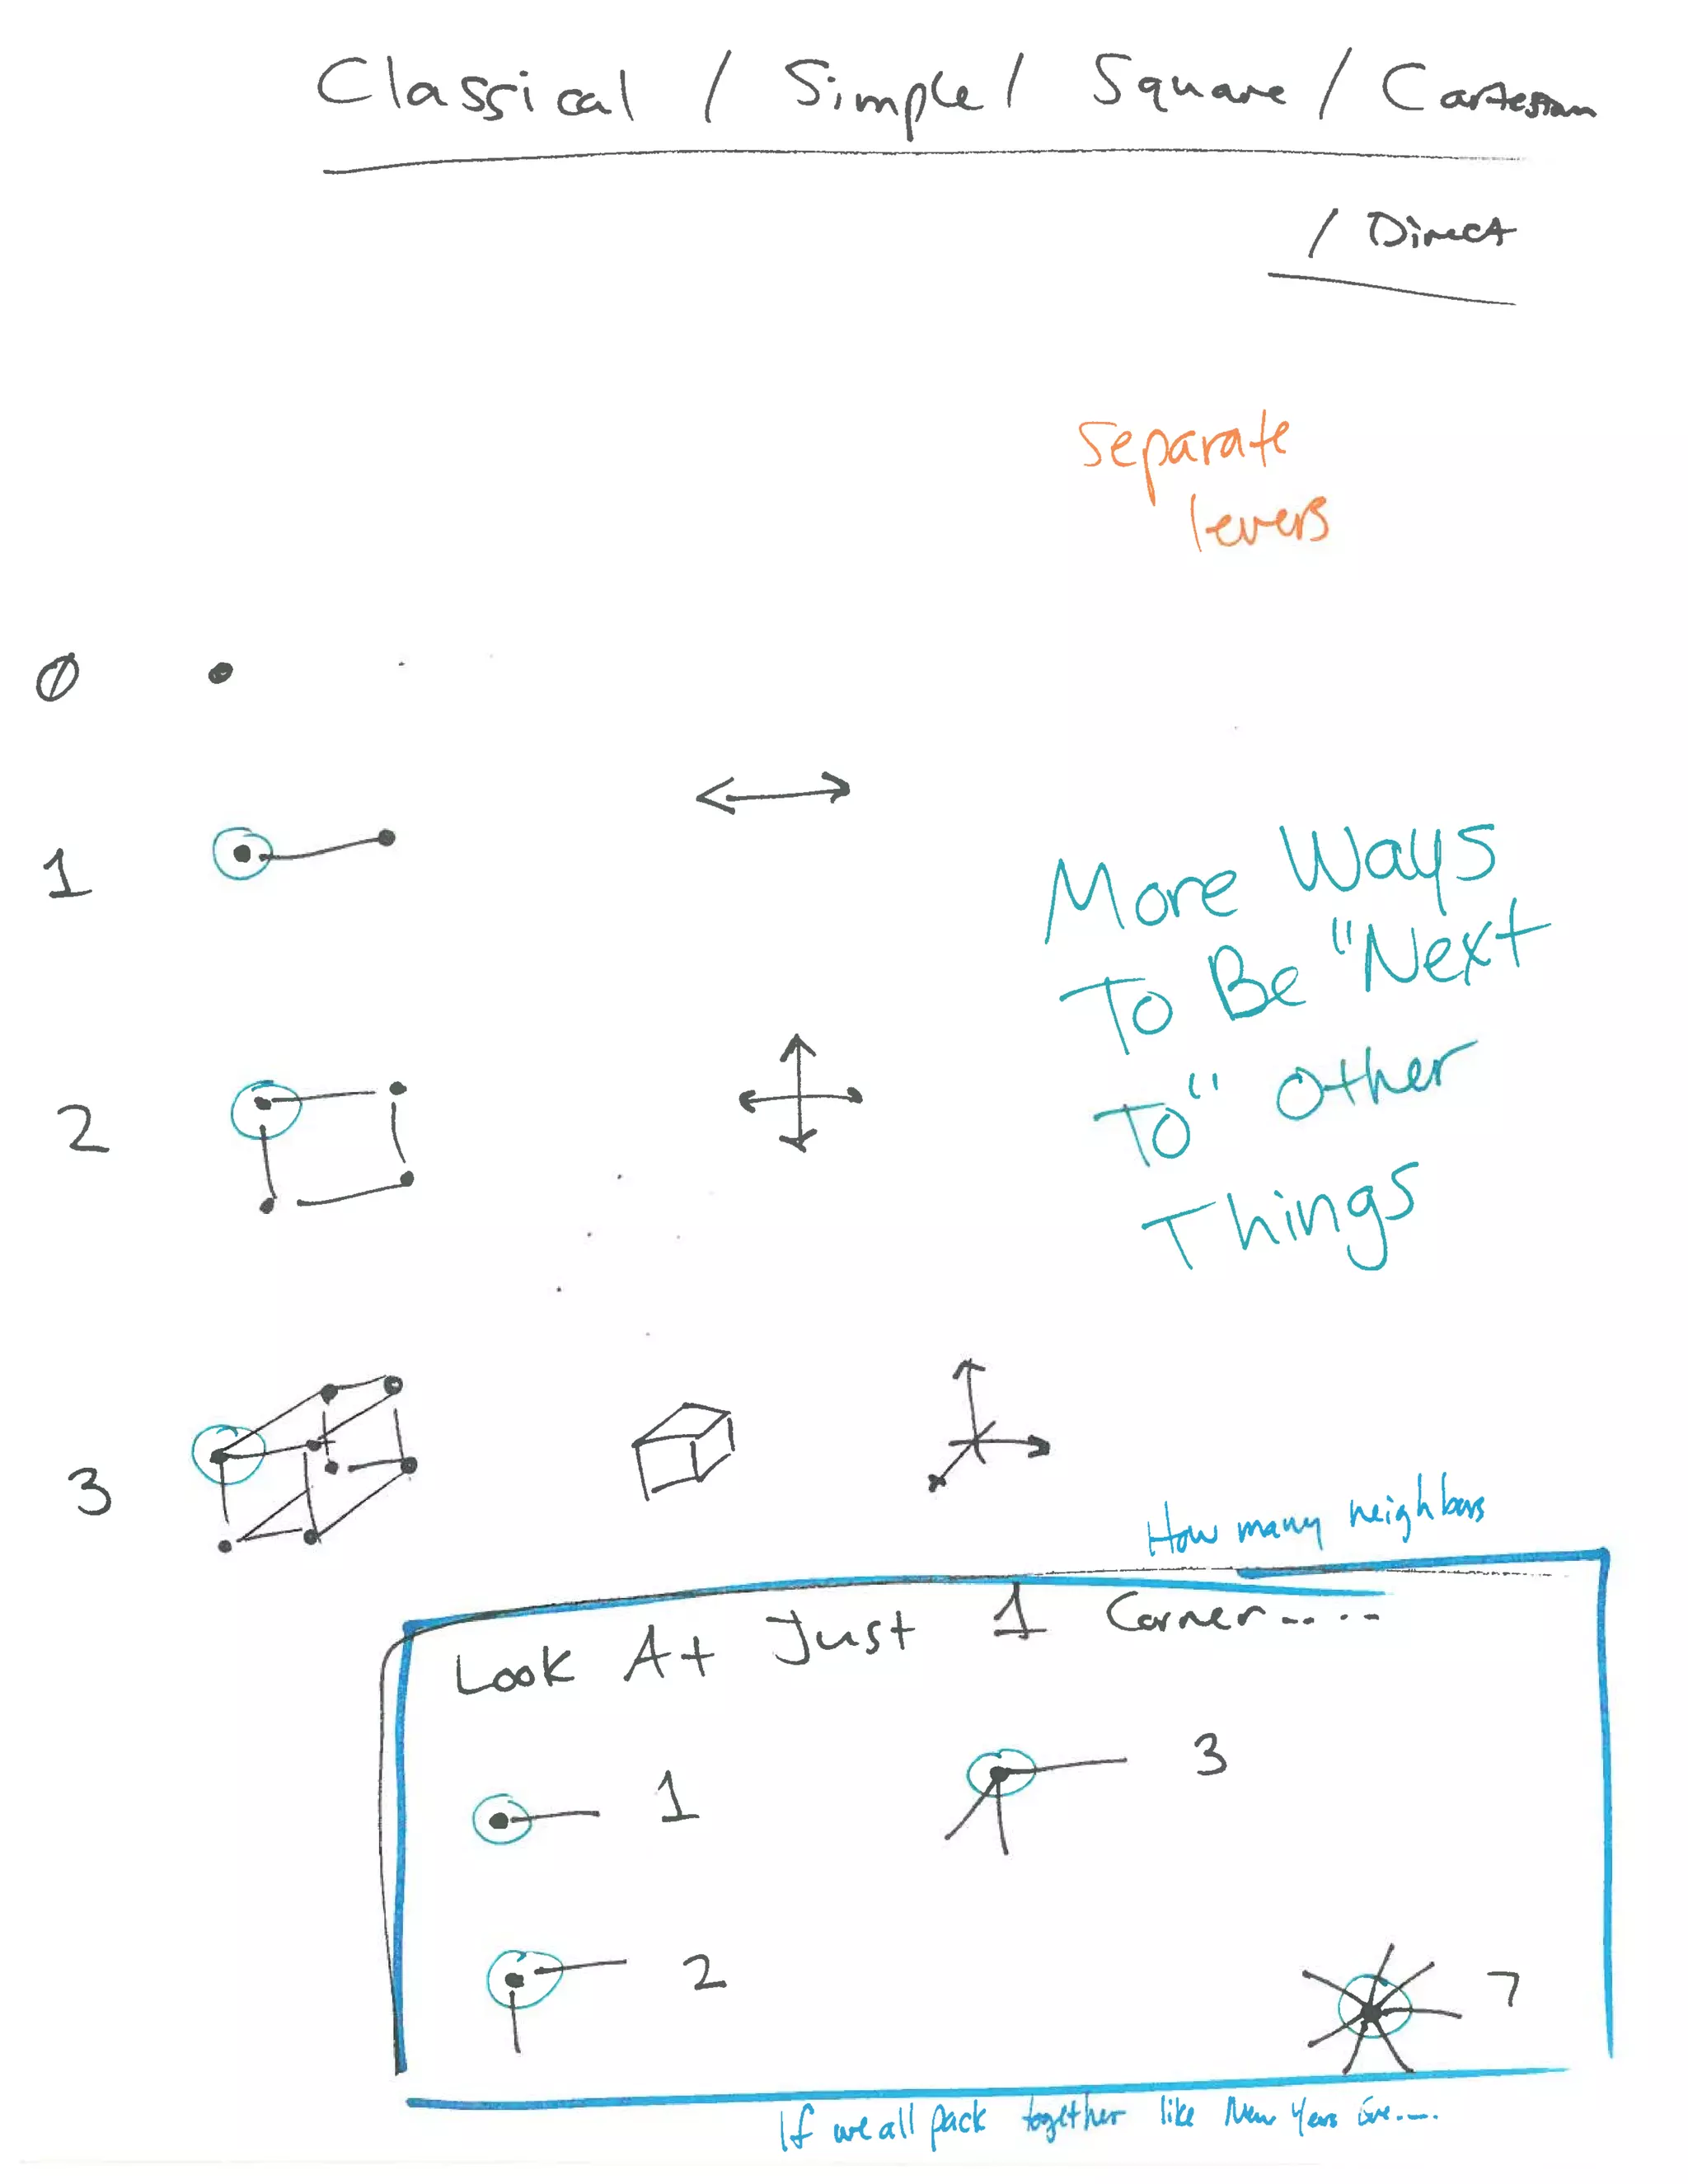 Classical / Simple / Square / Cartesian
/ Direct
Separate
levers
0
1
More Ways
To Be "Next
2
To" Other
Things
3
How many neighbors
Look At Just 1 Corner....
1
3
2
7
If we all pack together like New Years Eve....